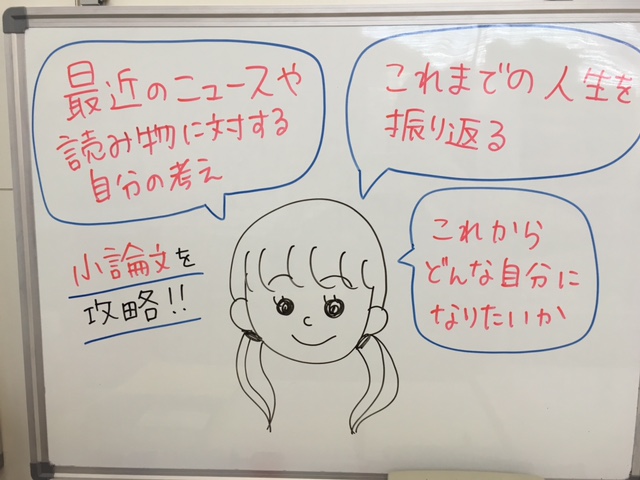 最近のニュースや
読み物に対する
自分の考え
これまでの人生を
振り返る
これから
どんな自分に
なりたいか
小論文を
攻略!!